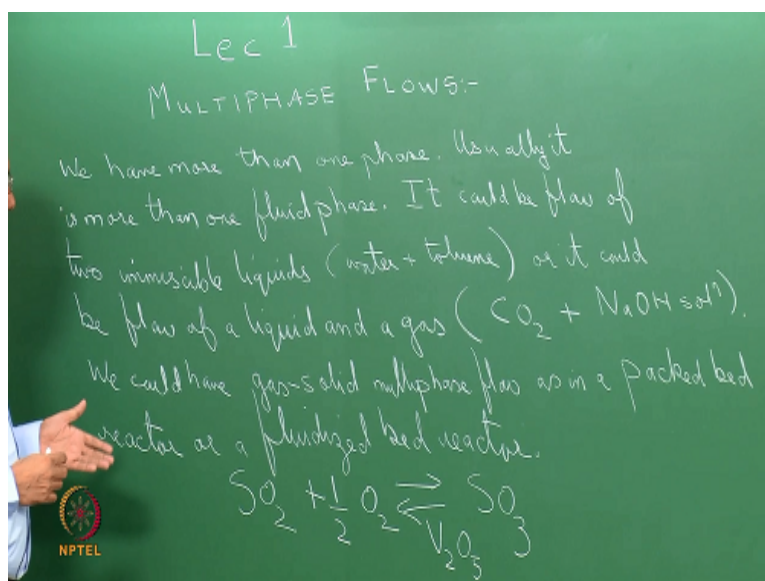 Lec 1
MULTIPHASE FLOWS:-
We have more than one phase. Usually it
is more than one fluid phase. It could be flow of
two immiscible liquids (water + toluene) or it could
be flow of a liquid and a gas (CO₂ + NaOH solⁿ).
We could have gas-solid multiphase flow as in a packed bed
reactor or a fluidized bed reactor.
SO₂ + 1/2 O₂ ⇌ SO₃
V₂O₅
NPTEL